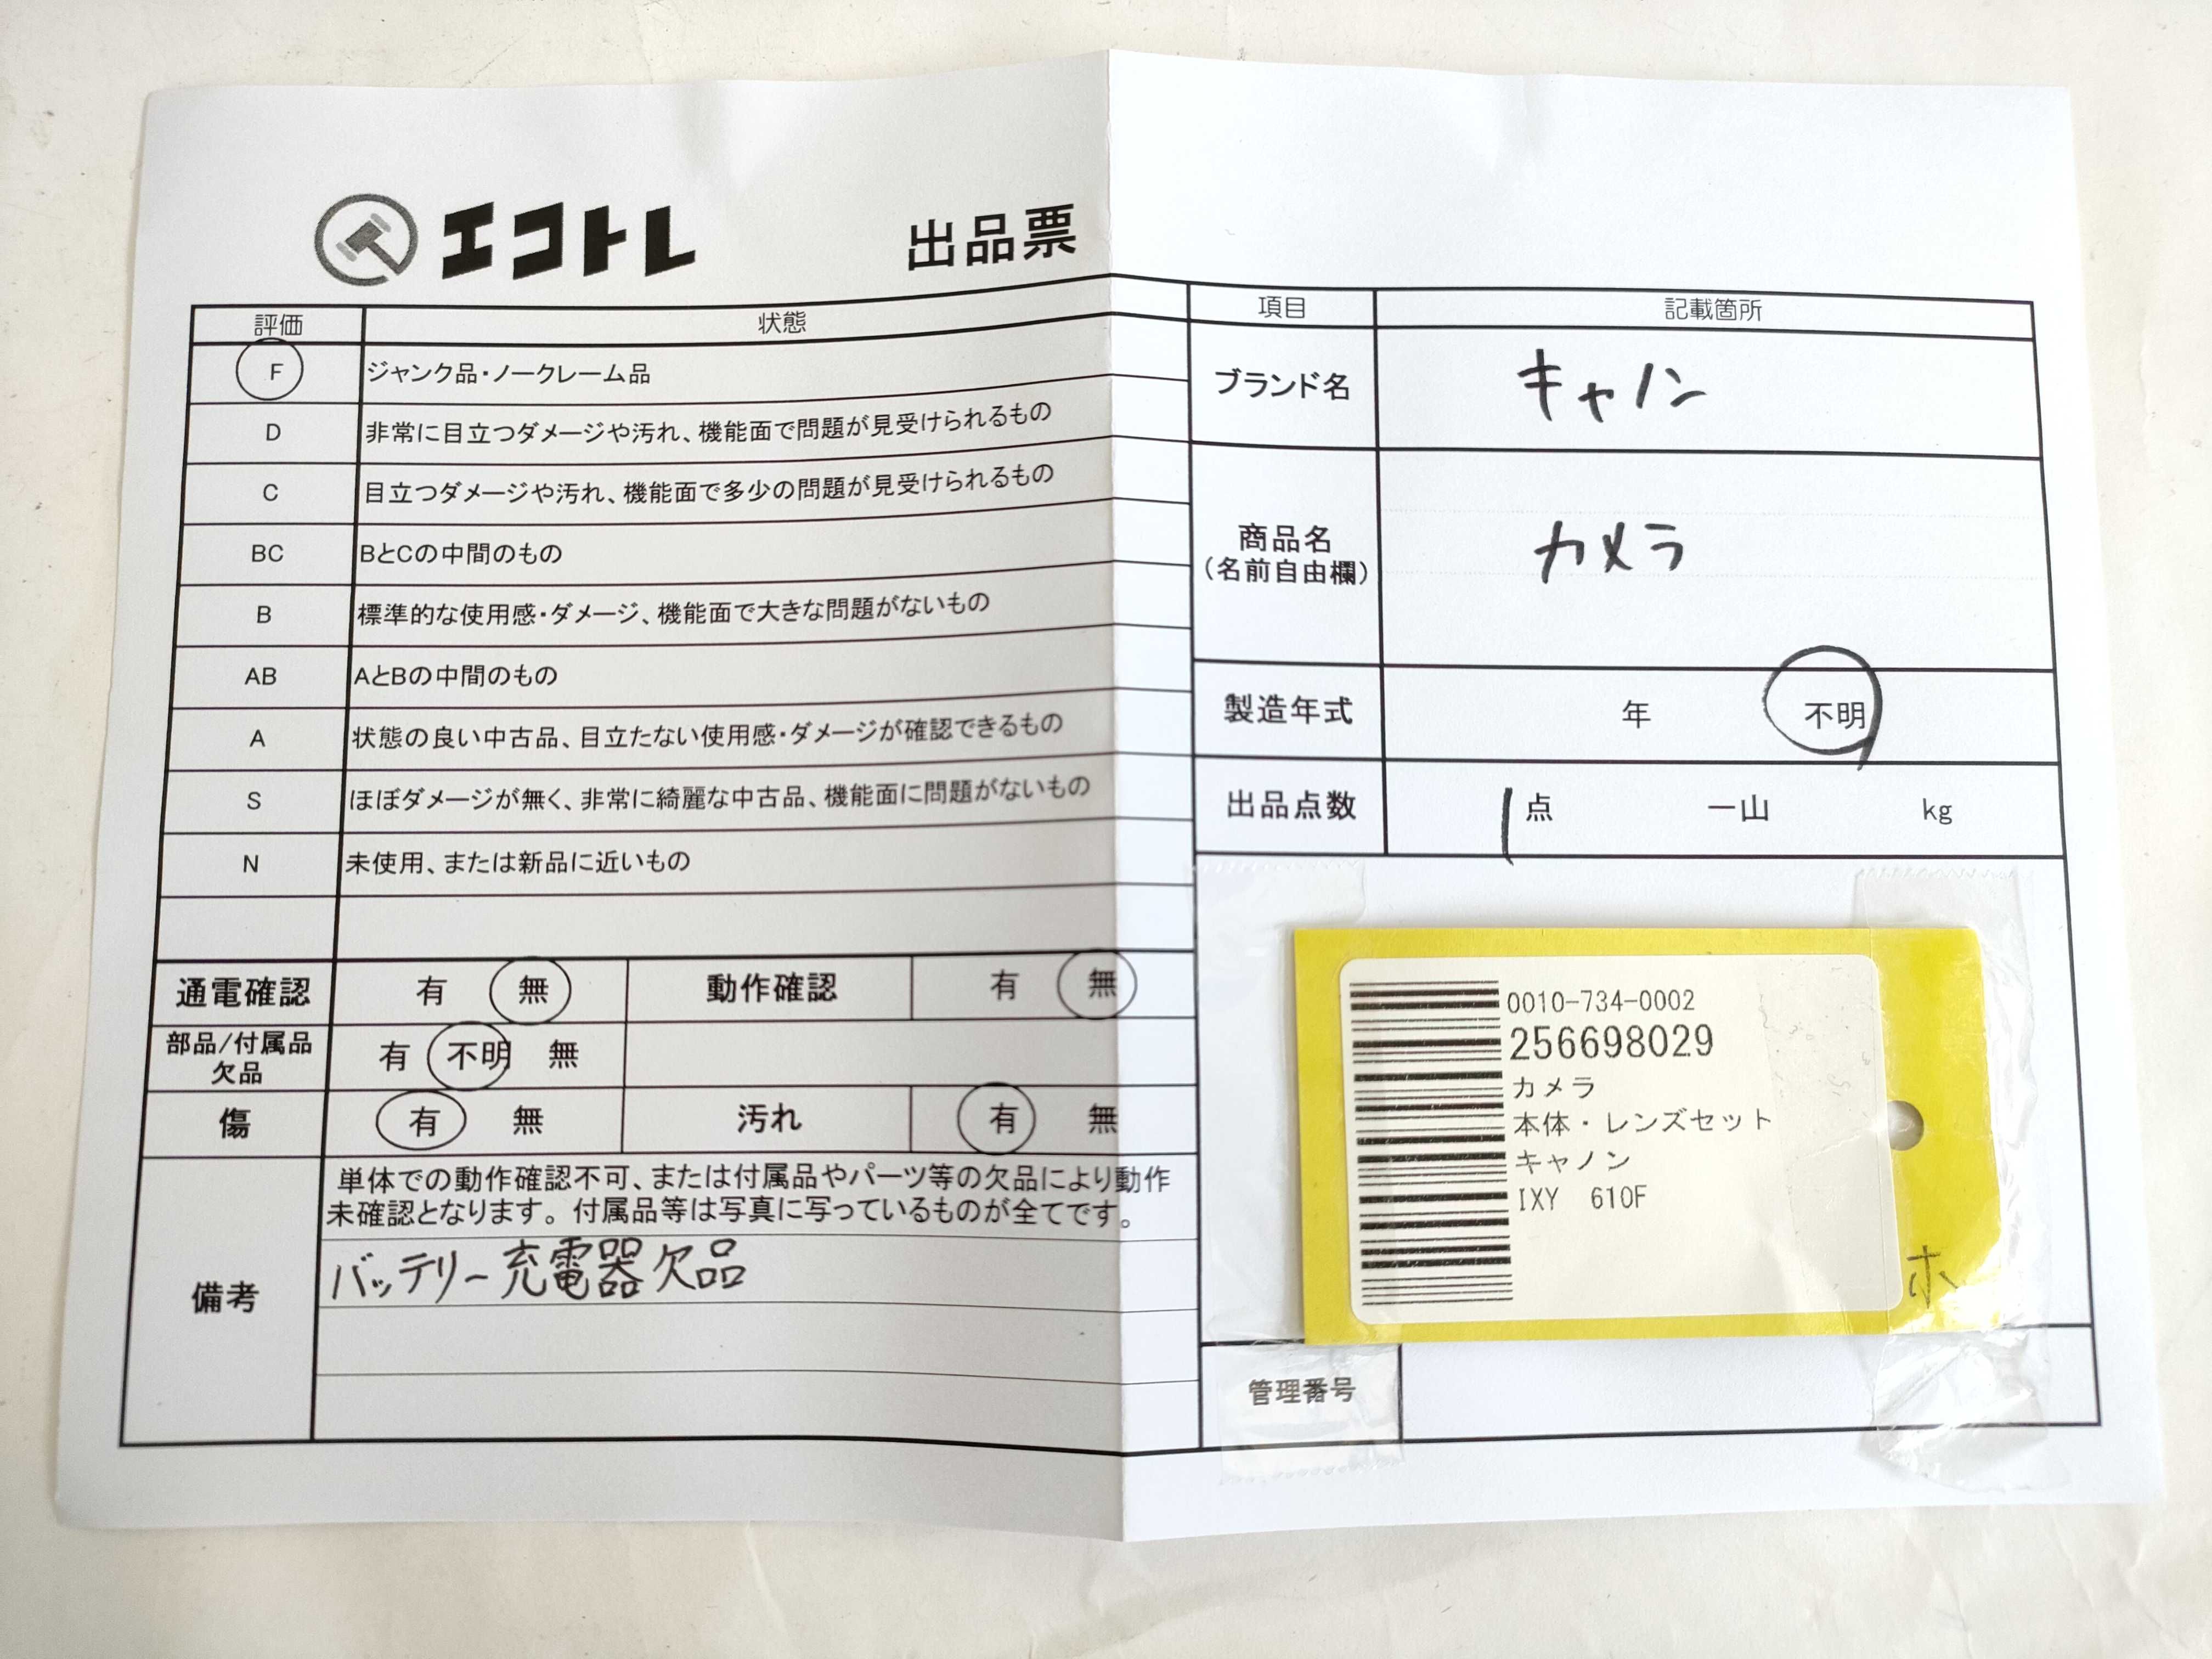 エコトレ
出品票
評価 状態
F ジャンク品・ノークレーム品
D 非常に目立つダメージや汚れ、機能面で問題が見受けられるもの
C 目立つダメージや汚れ、機能面で多少の問題が見受けられるもの
BC BとCの中間のもの
B 標準的な使用感・ダメージ、機能面で大きな問題がないもの
AB AとBの中間のもの
A 状態の良い中古品、目立たない使用感・ダメージが確認できるもの
S ほぼダメージが無く、非常に綺麗な中古品、機能面に問題がないもの
N 未使用、または新品に近いもの
通電確認 有 無 動作確認 有 無
部品/付属品
欠品
有 不明 無
傷 有 無 汚れ 有 無
備考
単体での動作確認不可、または付属品やパーツ等の欠品により動作
未確認となります。付属品等は写真に写っているものが全てです。
バッテリー充電器欠品
項目 記載箇所
ブランド名 キャノン
商品名
(名前自由欄)
カメラ
製造年式 年 不明
出品点数 1点 一山 kg
0010-734-0002
256698029
カメラ
本体・レンズセット
キャノン
IXY 610F
ホ
管理番号